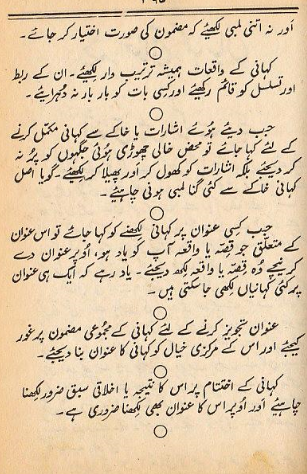 اور نہ اتنی لمبی لکھئے کہ مضمون کی صورت اختیار کر جائے۔
کہانی کے واقعات ہمیشہ ترتیب وار لکھئے۔ ان کے ربط
اور تسلسل کو قائم رکھئے اور کسی بات کو بار بار نہ دُہرایئے۔
جب دیئے ہُوئے اشارات یا خاکے سے کہانی مکمل کرنے
کے لئے کہا جائے تو محض خالی چھوڑی ہُوئی جگہوں کو پُر نہ
کر دیجئے بلکہ اشارات کو کھول کر اور پھیلا کر لکھئے۔ گویا اصل
کہانی خاکے سے کئی گنا لمبی ہونی چاہیئے۔
جب کسی عنوان پر کہانی لکھنے کو کہا جائے تو اس عنوان
کے متعلق جو قِصّہ یا واقعہ آپ کو یاد ہو، اُوپر عنوان دے
کر نیچے وُہ قِصّہ یا واقعہ لکھ دیجئے۔ یاد رہے کہ ایک ہی عنوان
پر کئی کہانیاں لکھی جا سکتی ہیں۔
عنوان تجویز کرنے کے لئے کہانی کے مجموعی مضمون پر غور
کیجئے اور اس کے مرکزی خیال کو کہانی کا عنوان بنا دیجئے۔
کہانی کے اختتام پر اس کا نتیجہ یا اخلاقی سبق ضرور لکھنا
چاہیئے اور اُوپر اس کا عنوان بھی لکھنا ضروری ہے۔